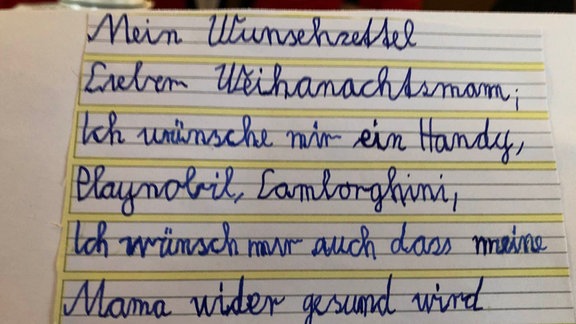 Mein Wunschzettel
Lieben Weihanachtsmann,
Ich wünsche mir ein Handy,
Playmobil, Lamborghini,
Ich wünsch mir auch dass meine
Mama wider gesund wird